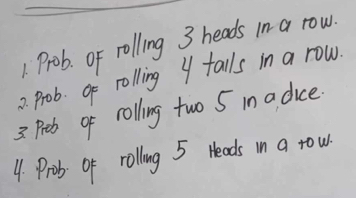 1. Prob. of rolling 3 heads in a row.
2. Prob. of rolling 4 tails in a row.
3. Prob of rolling two 5 in a dice.
4. Prob. of rolling 5 Heads in a row.